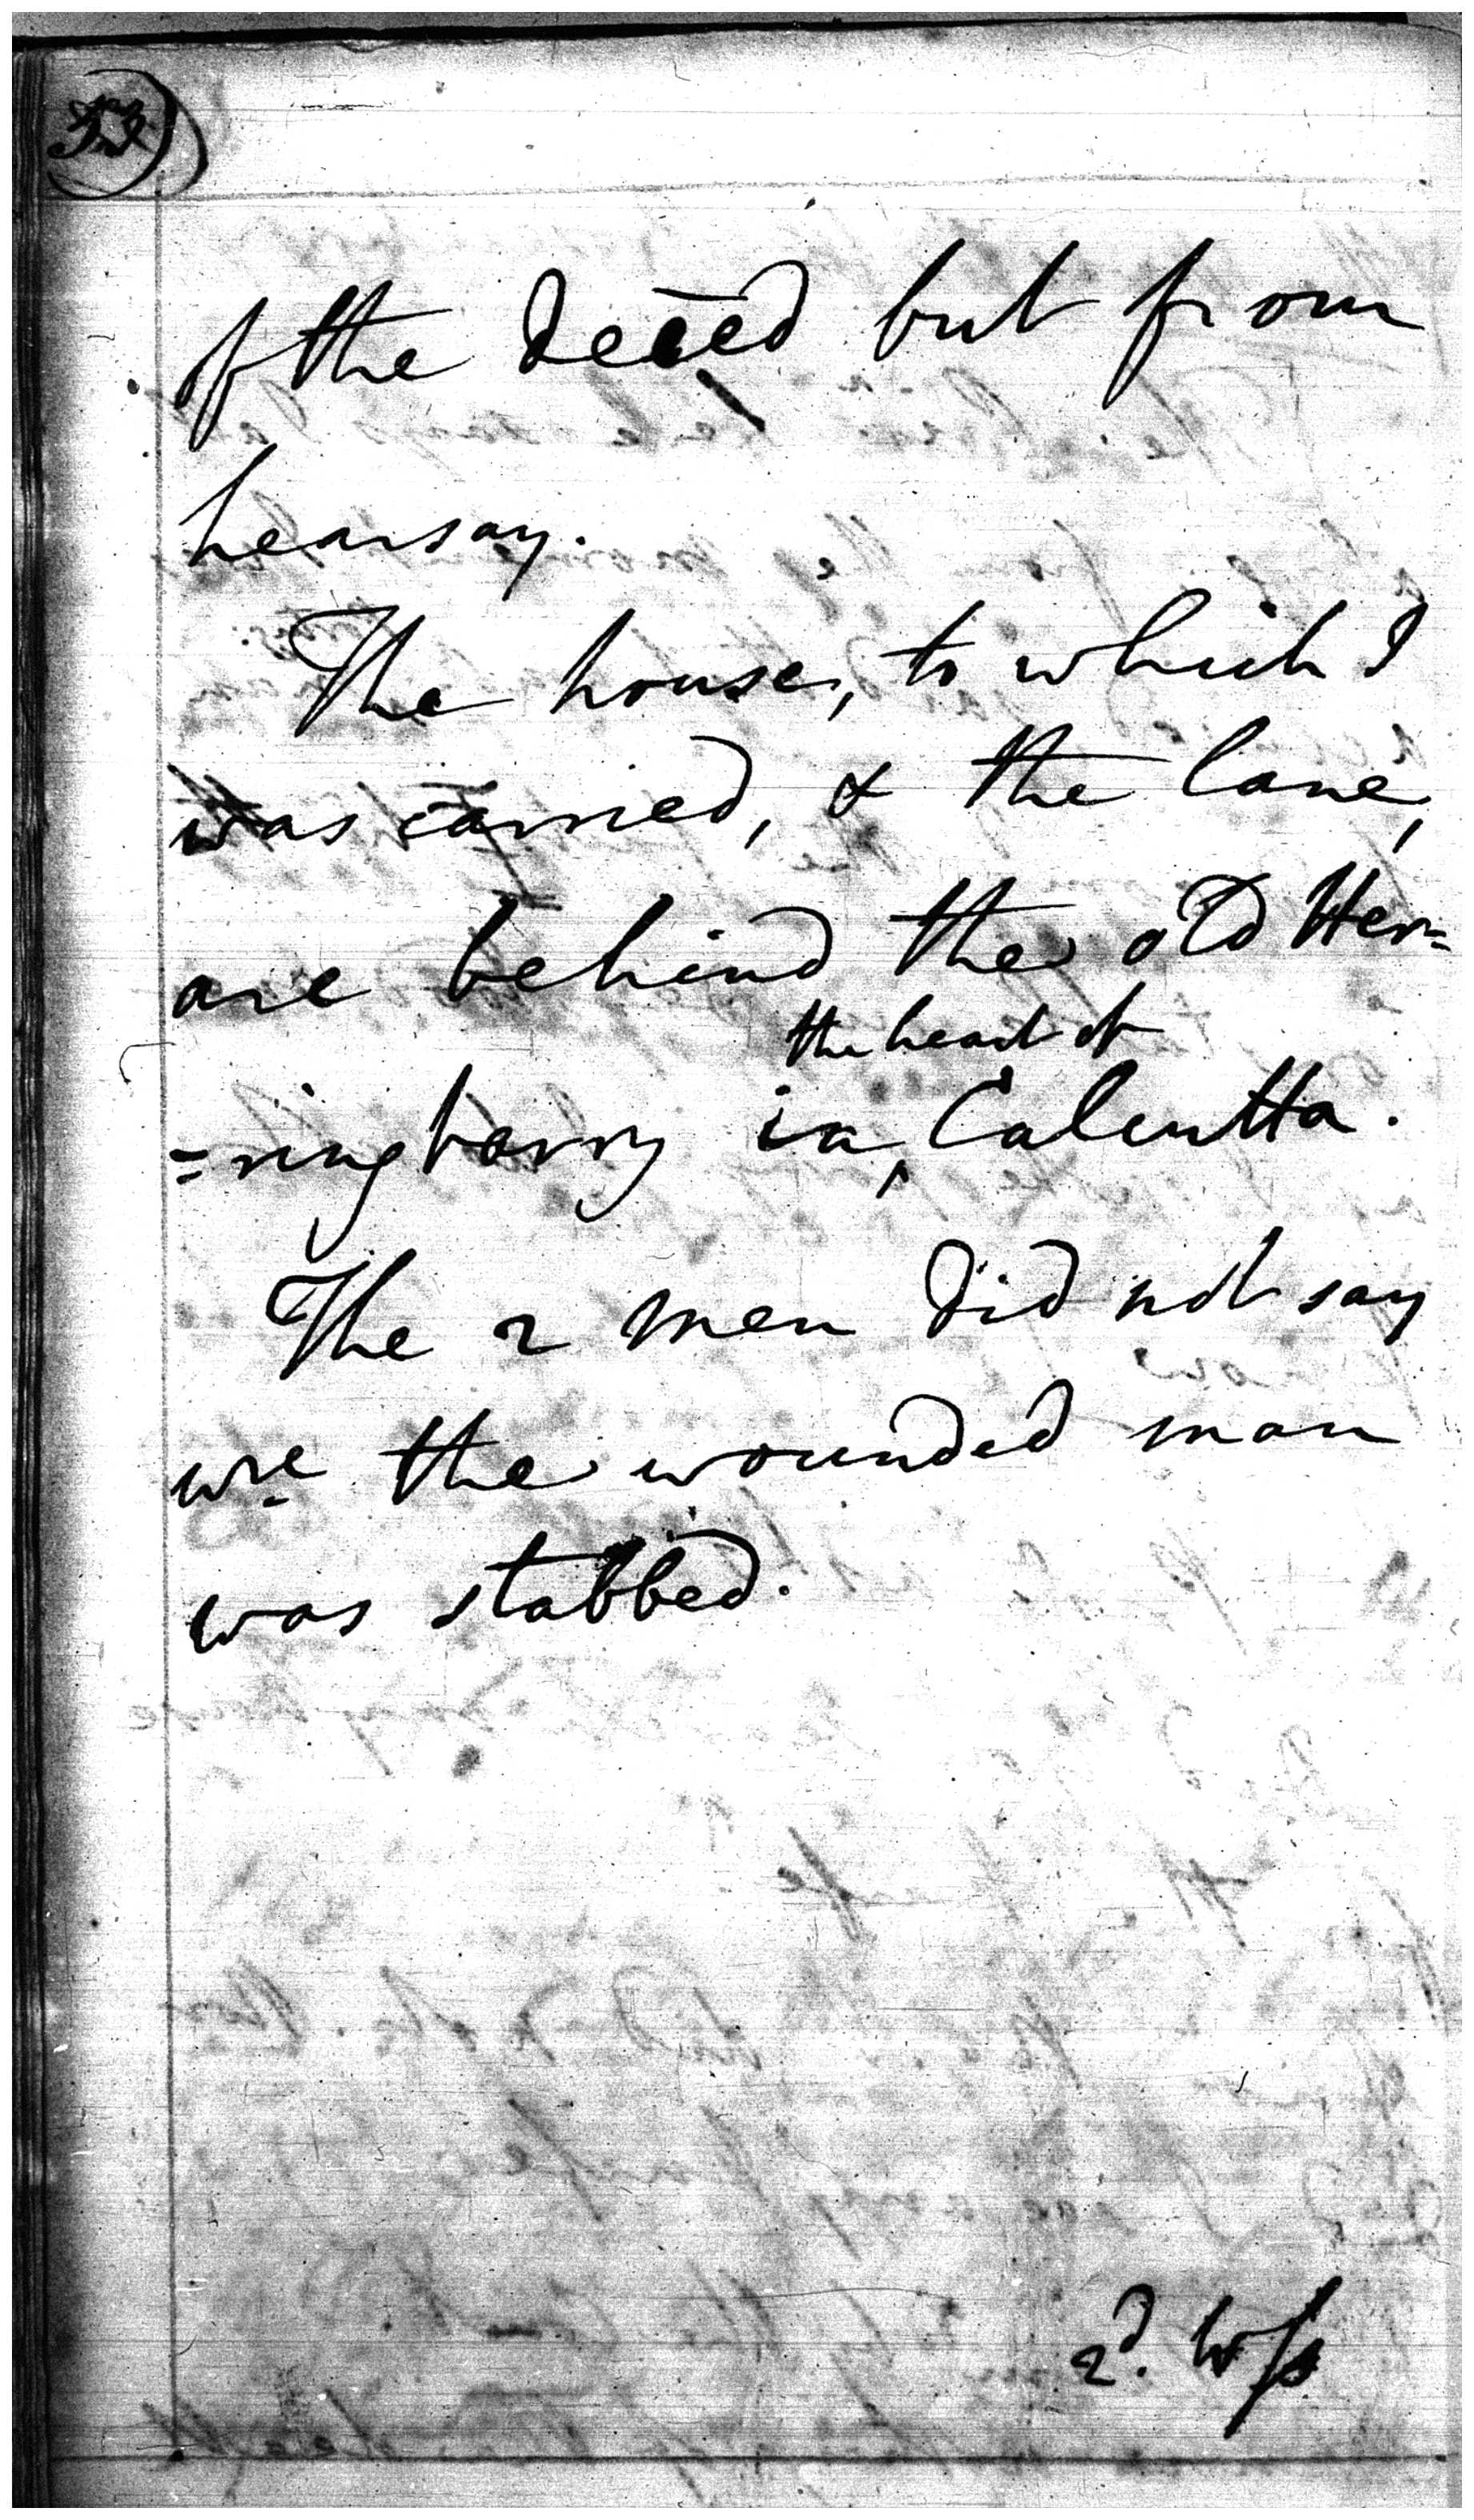 of the decēd but from
hearsay.
The house, to which I
was carried, & the lane,
are behind the old Her=
the heart of
=ringbarry in ^ Calcutta.
The 2 men did not say
wre the wounded man
was stabbed.
2d. Wss